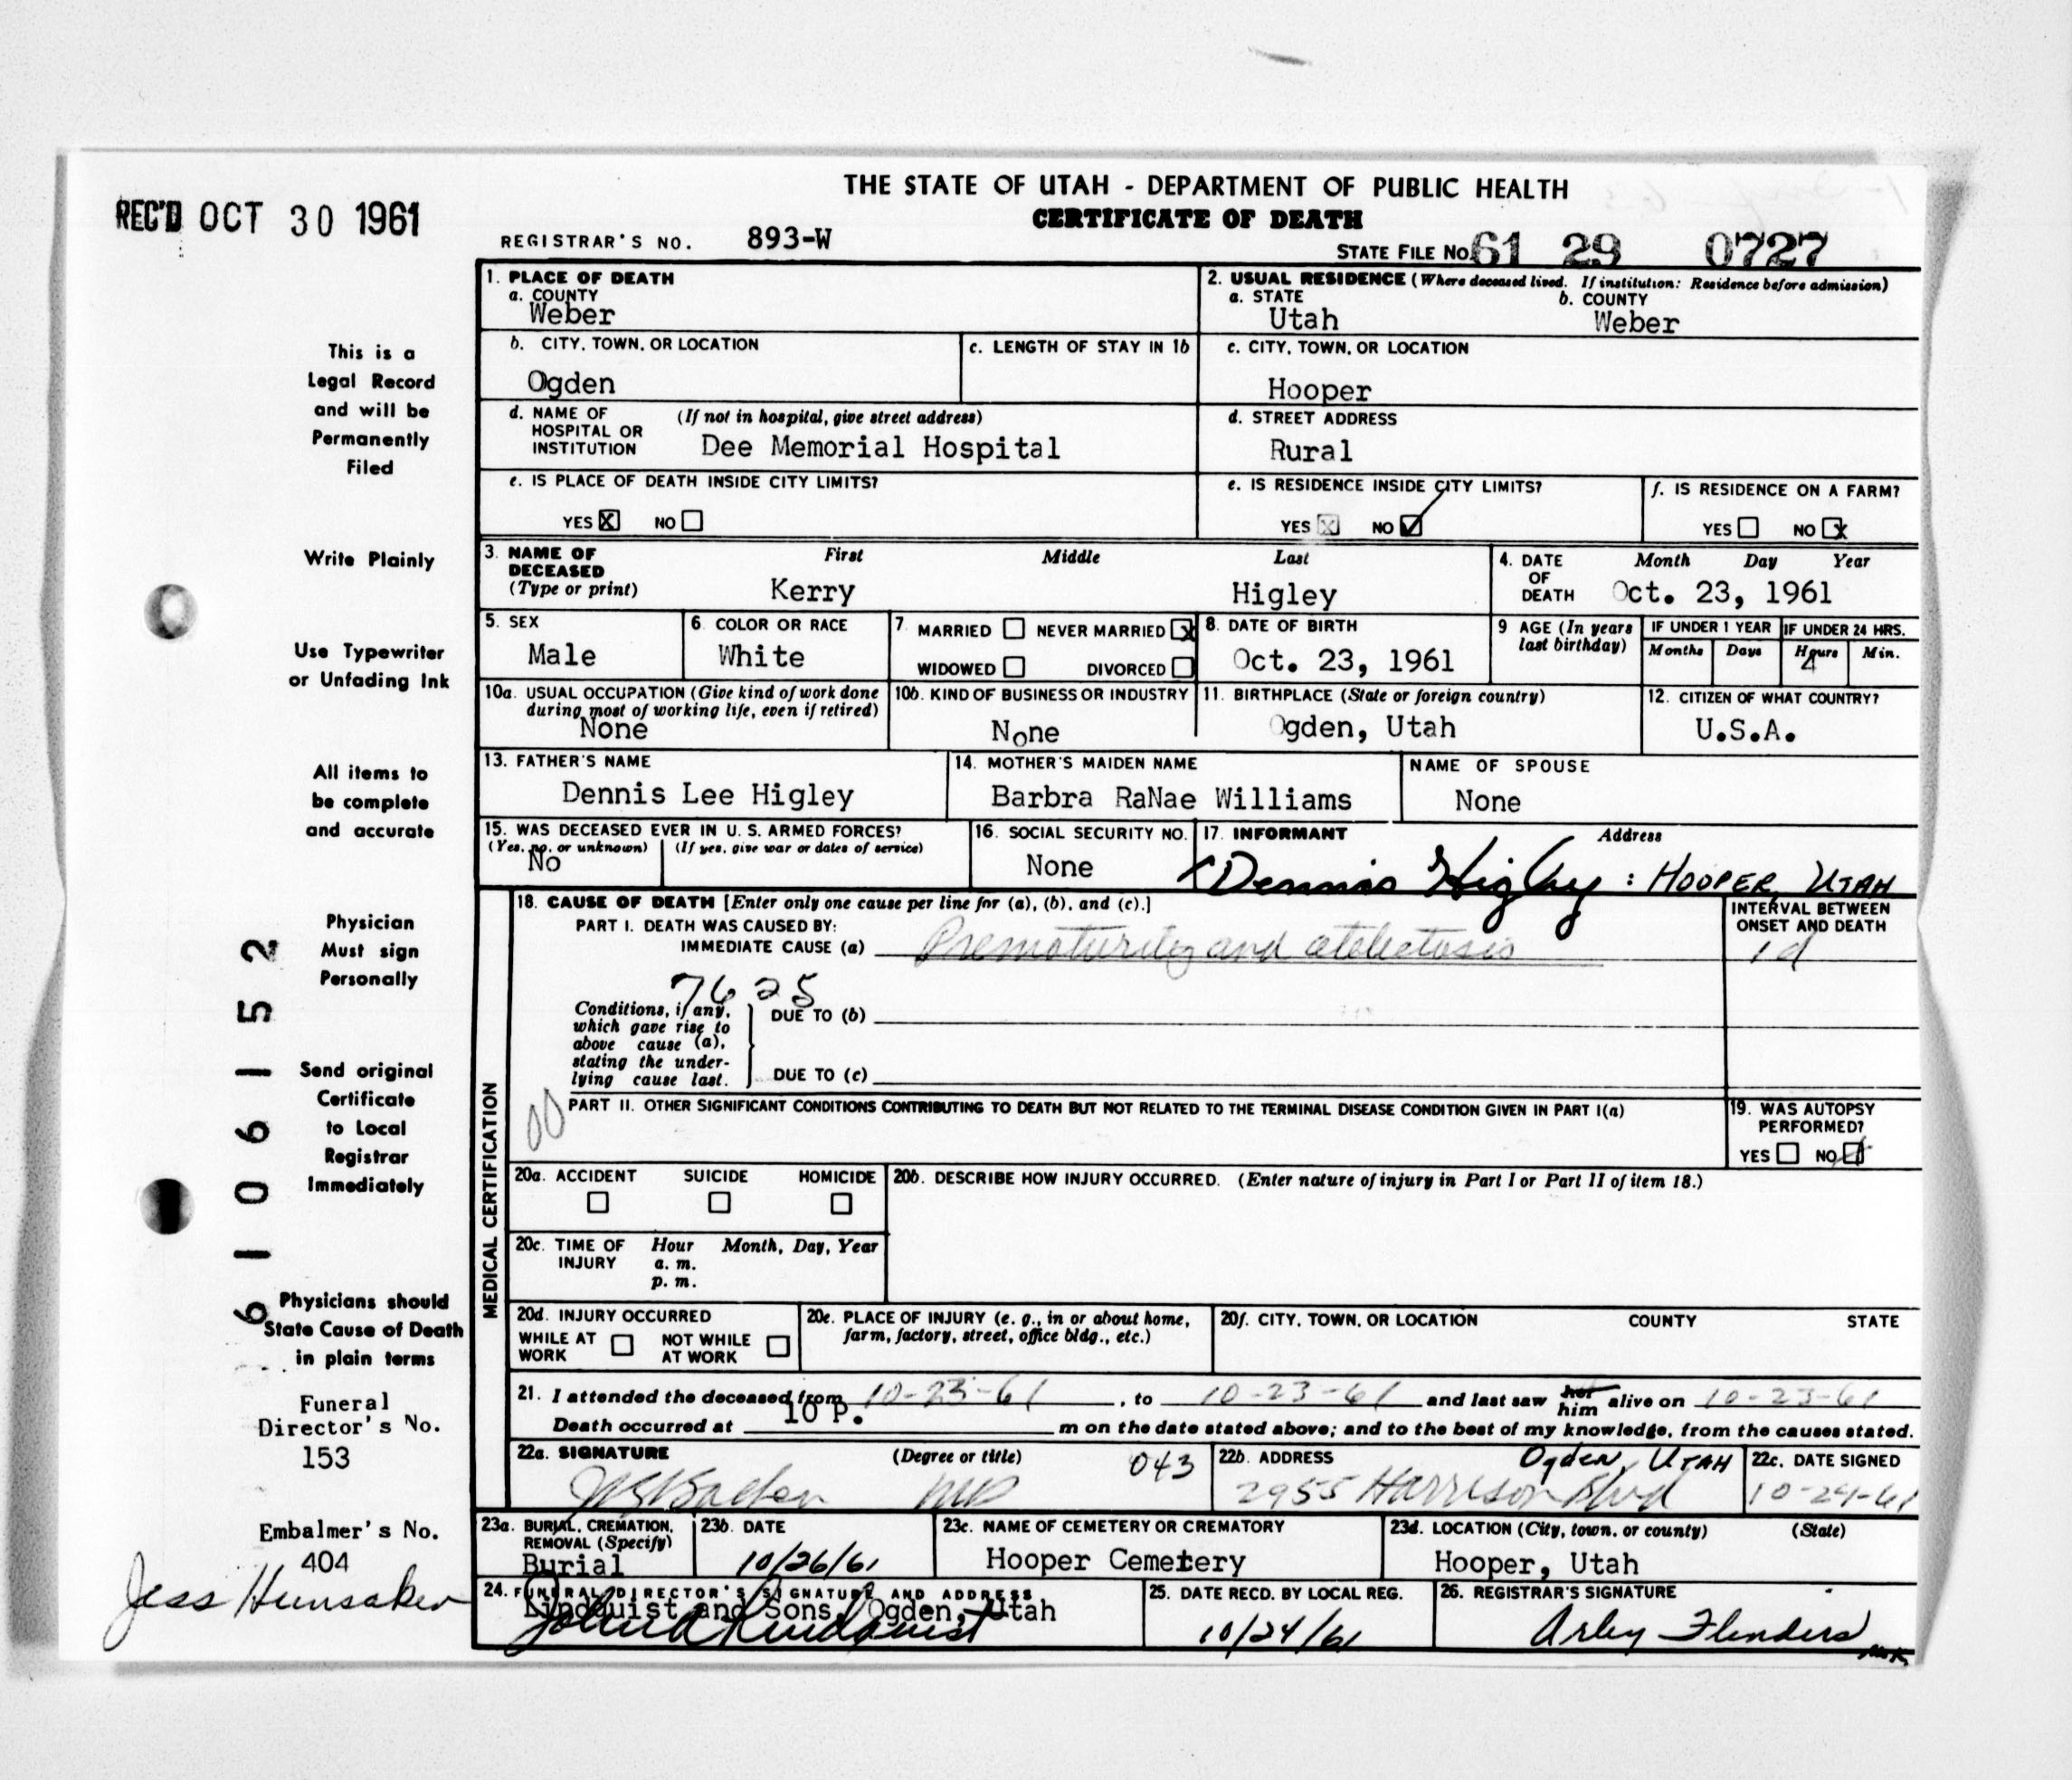 REC'D OCT 30 1961
THE STATE OF UTAH - DEPARTMENT OF PUBLIC HEALTH
CERTIFICATE OF DEATH
REGISTRAR'S NO. 893-W
STATE FILE No. 61 29 0727
This is a
Legal Record
and will be
Permanently
Filed
Write Plainly
Use Typewriter
or Unfading Ink
All items to
be complete
and accurate
Physician
Must sign
Personally
Send original
Certificate
to Local
Registrar
Immediately
Physicians should
State Cause of Death
in plain terms
Funeral
Director's No.
153
Embalmer's No.
404
Jess Hunsaker
61106152
1. PLACE OF DEATH
a. COUNTY
Weber
2. USUAL RESIDENCE (Where deceased lived. If institution: Residence before admission)
a. STATE b. COUNTY
Utah Weber
b. CITY, TOWN, OR LOCATION
Ogden
c. LENGTH OF STAY IN 1b
c. CITY, TOWN, OR LOCATION
Hooper
d. NAME OF (If not in hospital, give street address)
HOSPITAL OR
INSTITUTION Dee Memorial Hospital
d. STREET ADDRESS
Rural
e. IS PLACE OF DEATH INSIDE CITY LIMITS?
YES X NO
e. IS RESIDENCE INSIDE CITY LIMITS?
YES X NO ✓
f. IS RESIDENCE ON A FARM?
YES NO X
3. NAME OF First Middle Last
DECEASED
(Type or print) Kerry Higley
4. DATE Month Day Year
OF
DEATH Oct. 23, 1961
5. SEX
Male
6. COLOR OR RACE
White
7. MARRIED NEVER MARRIED X
WIDOWED DIVORCED
8. DATE OF BIRTH
Oct. 23, 1961
9 AGE (In years
last birthday)
IF UNDER 1 YEAR IF UNDER 24 HRS.
Months Days Hours Min.
4
10a. USUAL OCCUPATION (Give kind of work done
during most of working life, even if retired)
None
10b. KIND OF BUSINESS OR INDUSTRY
None
11. BIRTHPLACE (State or foreign country)
Ogden, Utah
12. CITIZEN OF WHAT COUNTRY?
U.S.A.
13. FATHER'S NAME
Dennis Lee Higley
14. MOTHER'S MAIDEN NAME
Barbra RaNae Williams
NAME OF SPOUSE
None
15. WAS DECEASED EVER IN U. S. ARMED FORCES?
(Yes, no, or unknown) (If yes, give war or dates of service)
No
16. SOCIAL SECURITY NO.
None
17. INFORMANT Address
Dennis Higley : HOOPER, UTAH
MEDICAL CERTIFICATION
18. CAUSE OF DEATH [Enter only one cause per line for (a), (b), and (c).]
PART I. DEATH WAS CAUSED BY:
IMMEDIATE CAUSE (a) Prematurity and atelectasis
INTERVAL BETWEEN
ONSET AND DEATH
1 d
7625
Conditions, if any,
which gave rise to
above cause (a),
stating the under-
lying cause last.
DUE TO (b)
DUE TO (c)
00
PART II. OTHER SIGNIFICANT CONDITIONS CONTRIBUTING TO DEATH BUT NOT RELATED TO THE TERMINAL DISEASE CONDITION GIVEN IN PART I(a)
19. WAS AUTOPSY
PERFORMED?
YES NO
20a. ACCIDENT SUICIDE HOMICIDE
20b. DESCRIBE HOW INJURY OCCURRED. (Enter nature of injury in Part I or Part II of item 18.)
20c. TIME OF Hour Month, Day, Year
INJURY a. m.
p. m.
20d. INJURY OCCURRED
WHILE AT NOT WHILE
WORK AT WORK
20e. PLACE OF INJURY (e. g., in or about home,
farm, factory, street, office bldg., etc.)
20f. CITY, TOWN, OR LOCATION COUNTY STATE
21. I attended the deceased from 10-23-61, to 10-23-61 and last saw her him alive on 10-23-61
Death occurred at 10 P. m on the date stated above; and to the best of my knowledge, from the causes stated.
22a. SIGNATURE (Degree or title) 043
MD
22b. ADDRESS Ogden, UTAH
2955 Harrison Blvd
22c. DATE SIGNED
10-24-61
23a. BURIAL, CREMATION,
REMOVAL (Specify)
Burial
23b. DATE
10/26/61
23c. NAME OF CEMETERY OR CREMATORY
Hooper Cemetery
23d. LOCATION (City, town, or county) (State)
Hooper, Utah
24. FUNERAL DIRECTOR'S SIGNATURE AND ADDRESS
Lindquist and Sons, Ogden, Utah
John A Lindquist
25. DATE RECD. BY LOCAL REG.
10/24/61
26. REGISTRAR'S SIGNATURE
Arley Flinders